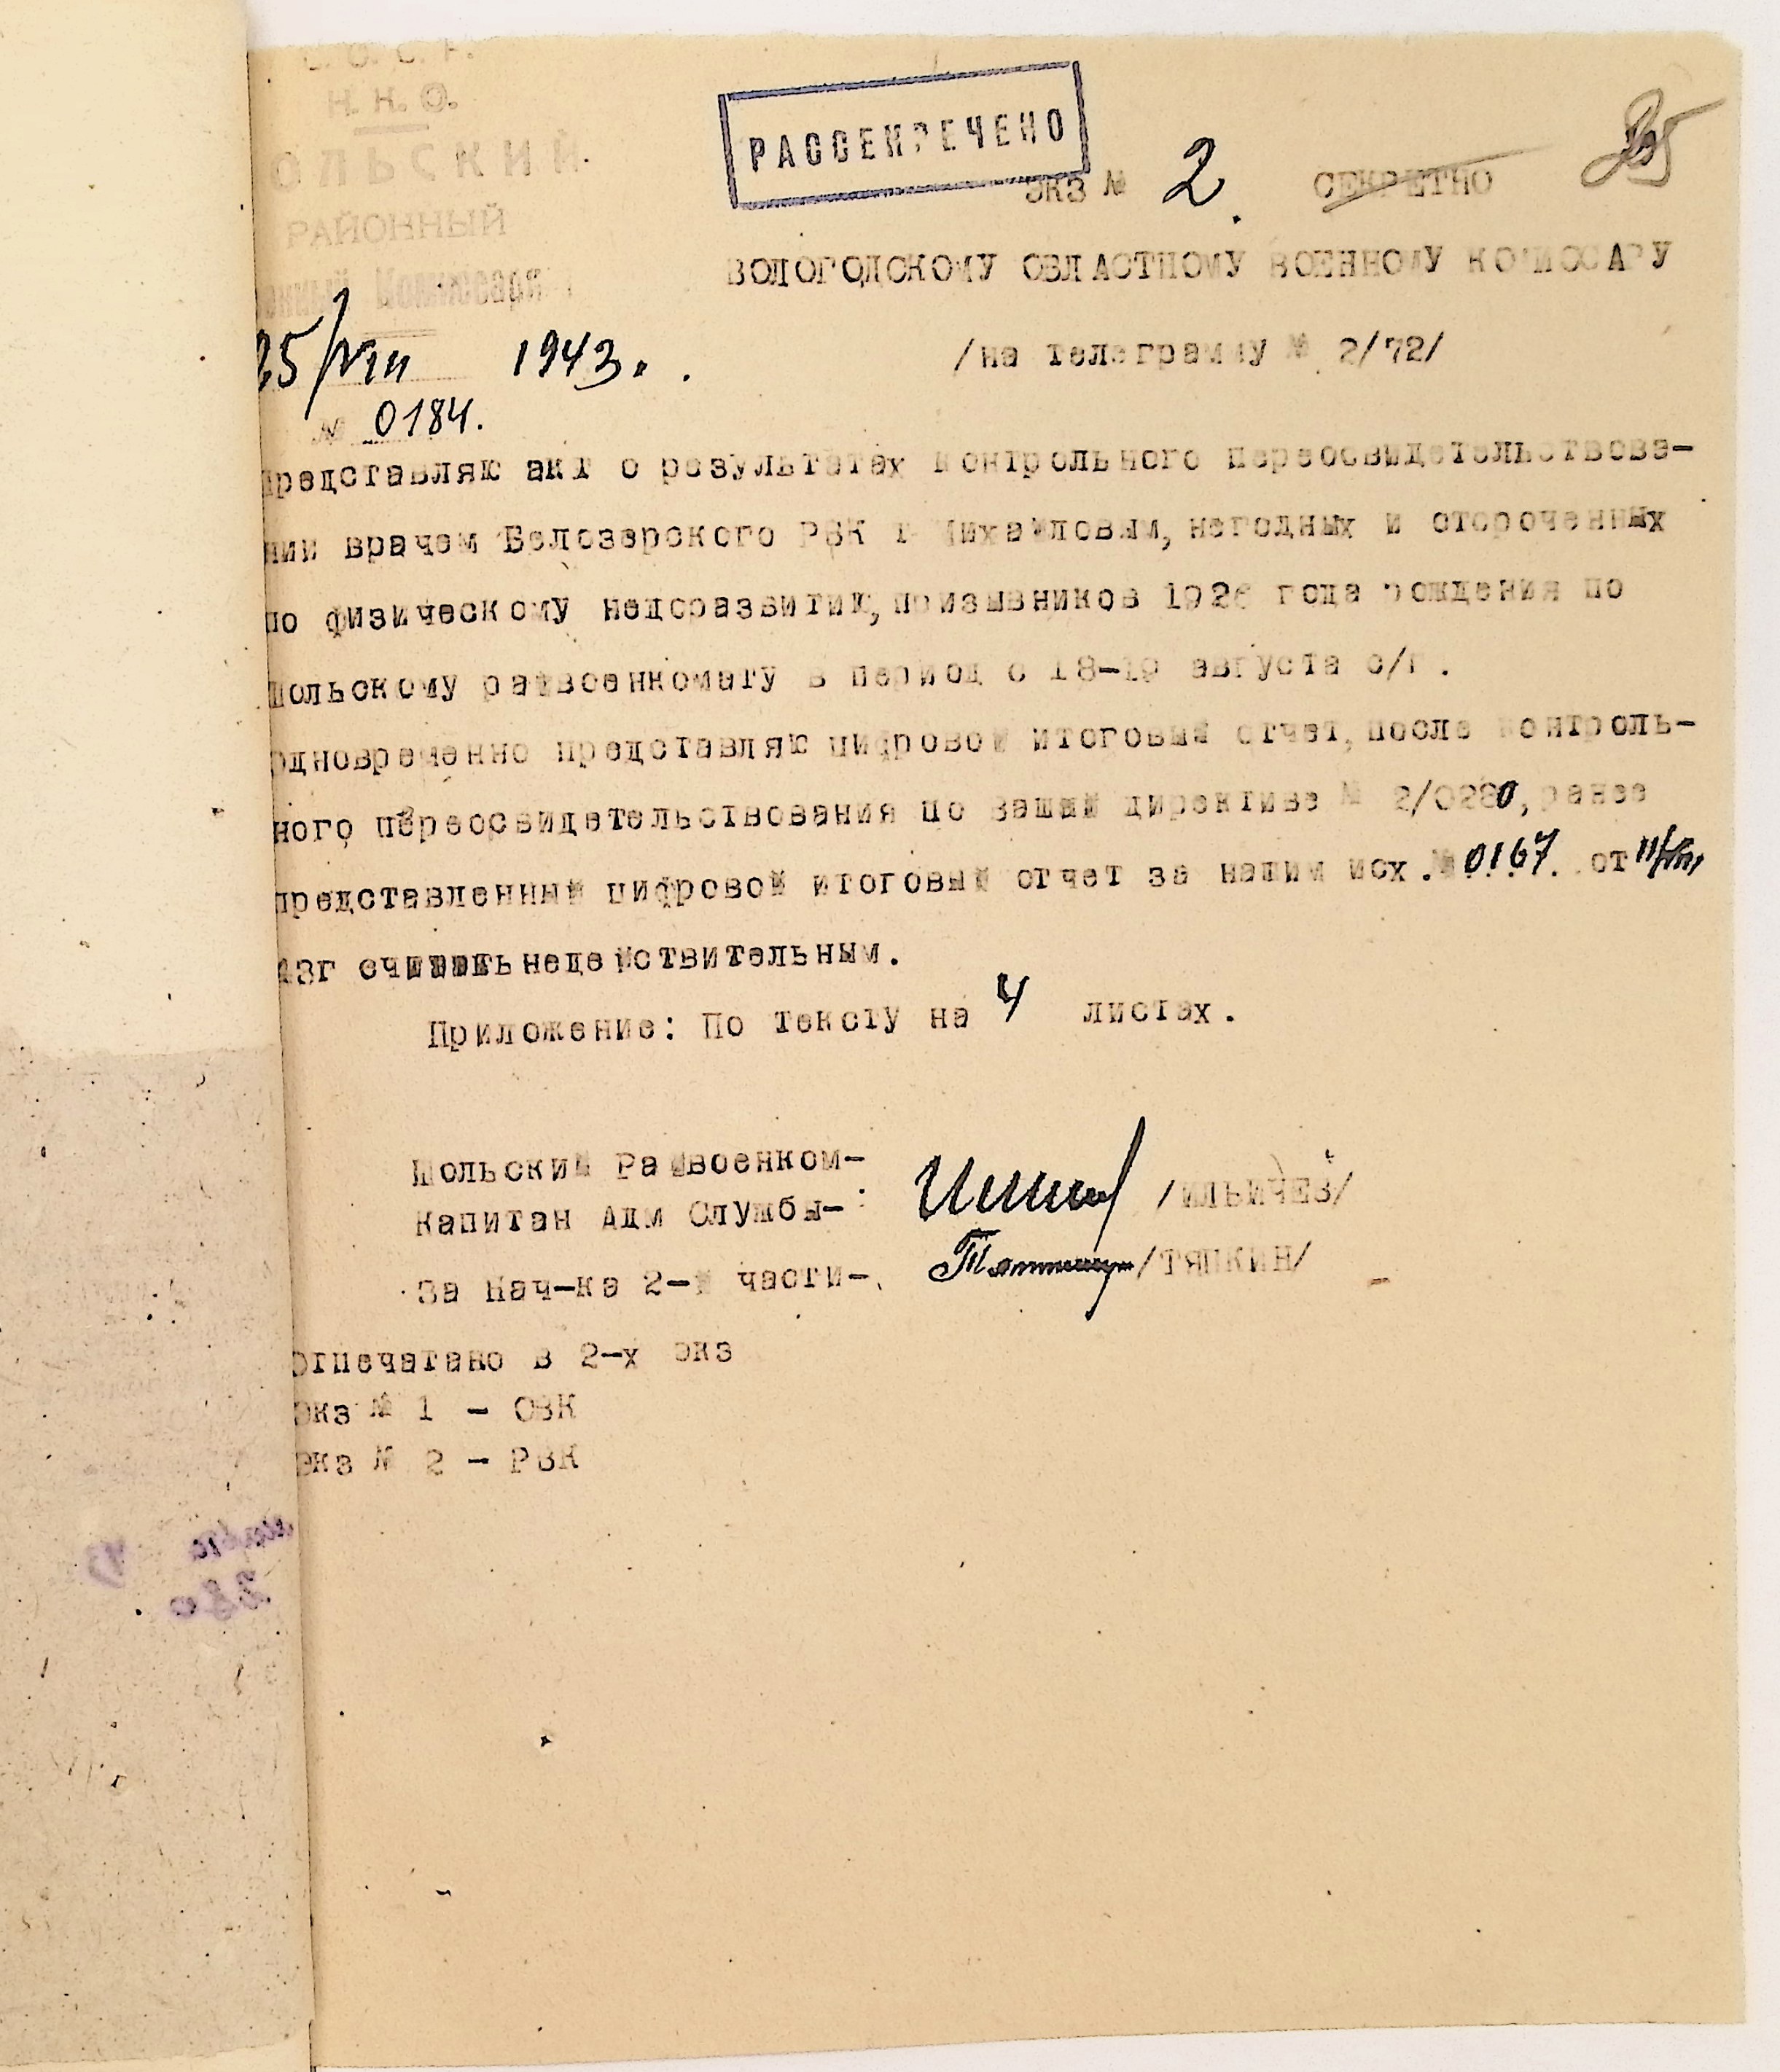 С. С. С. Р.
Н. К. О.
ОЛЬСКИЙ
РАЙОННЫЙ
нный Комиссариат
РАССЕКРЕЧЕНО
ЭКЗ № 2. СЕКРЕТНО
ВОЛОГОДСКОМУ ОБЛАСТНОМУ ВОЕННОМУ КОМИССАРУ
25/VIII 1943.
/на телеграмму № 2/72/
№ 0184.
представляю акт о результатах контрольного переосвидетельствова-
нии врачем Белозерского РВК т Михайловым, негодных и отсроченных
по физическому недоразвитию, призывников 1926 года рождения по
Шольскому райвоенкомату в период с 18-19 августа с/г.
Одновременно представляю цифровой итоговый отчет, после контроль-
ного переосвидетельствования по вашей директиве № 2/0280, ранее
представленный цифровой итоговый отчет за нашим исх.№ 0167. от 11/VIII
43г считать недействительным.
Приложение: По тексту на 4 листах.
Шольский Райвоенком-
Капитан Адм Службы-: /ИЛЬИЧЕВ/
За Нач-ка 2-й части-. /ТЯПКИН/
Отпечатано в 2-х экз
Экз № 1 - ОВК
Экз № 2 - РВК